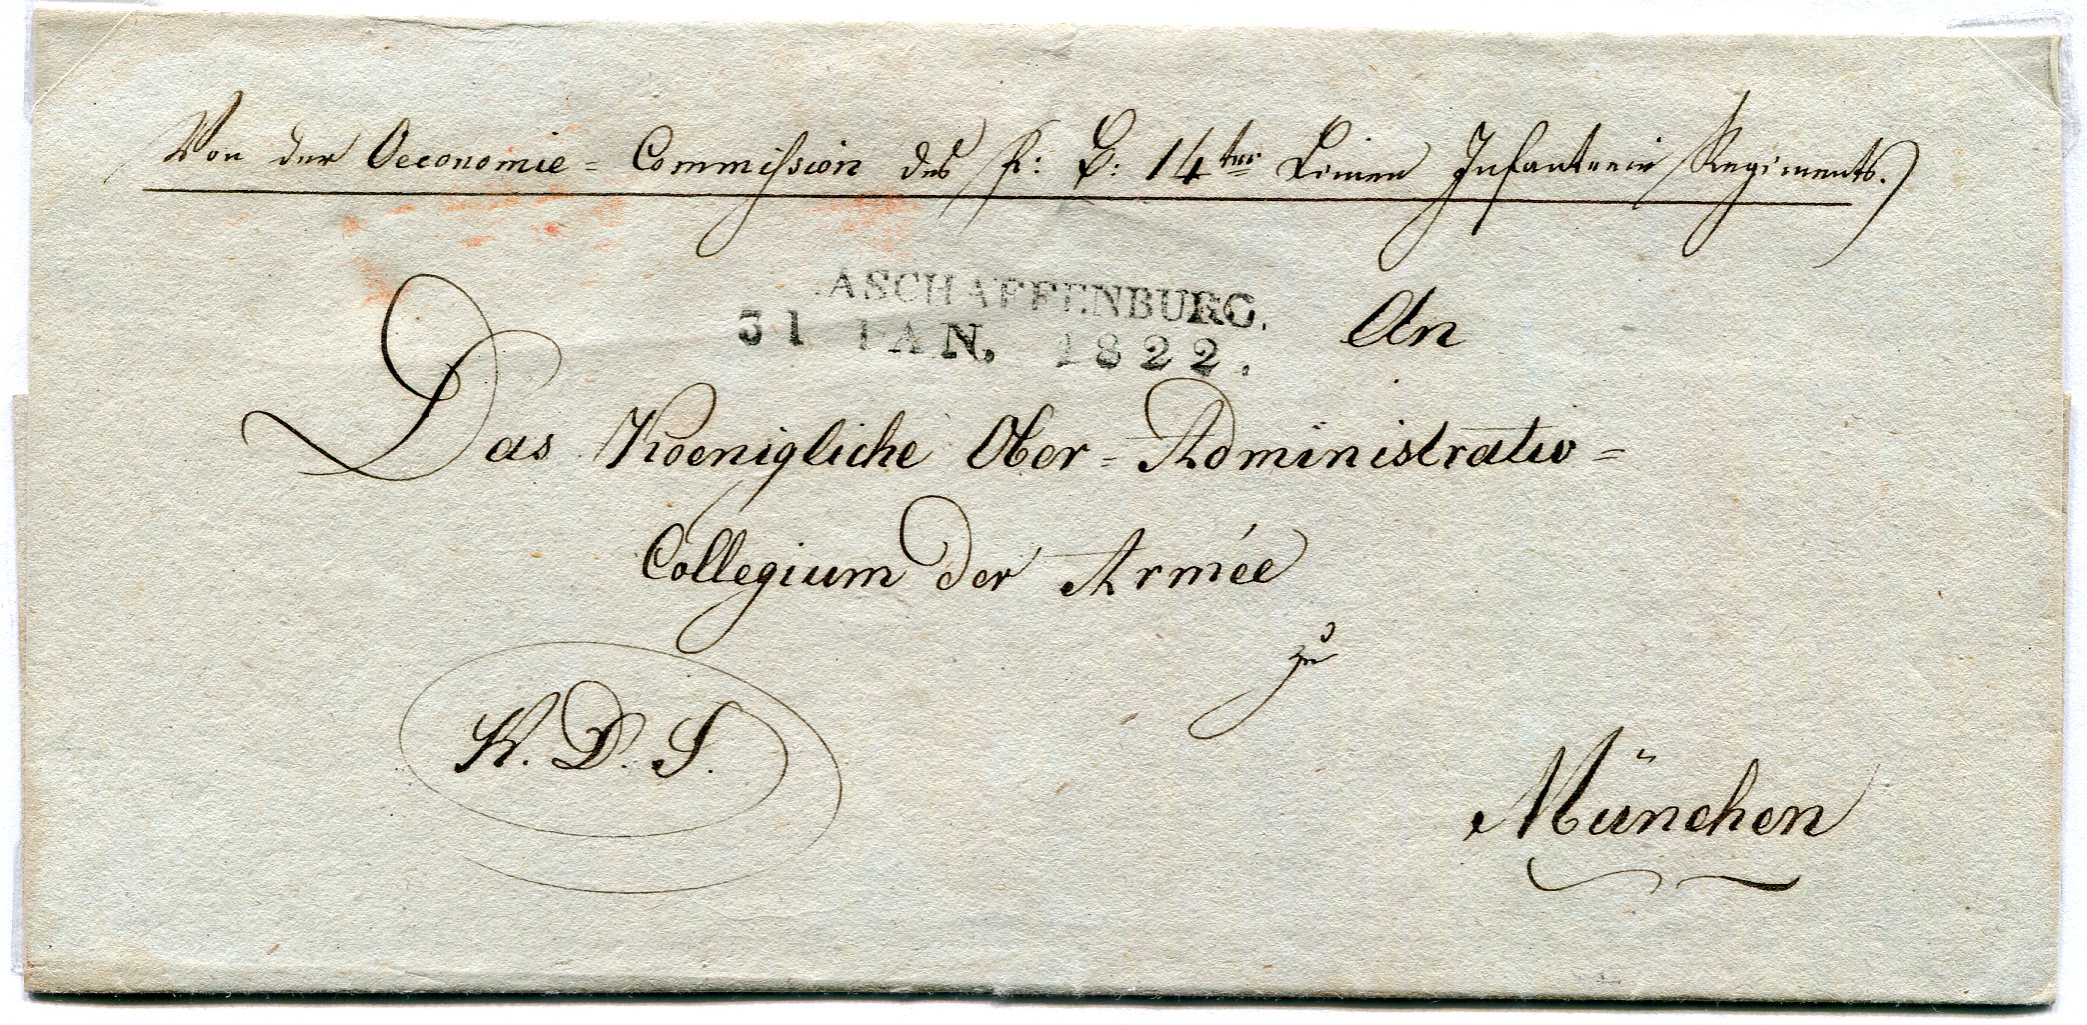 Von der Oeconomie = Commission des k: B: 14ten Linien Infanterie Regiments.
ASCHAFFENBURG.
31 IAN. 1822.
An
Das Koenigliche Ober = Administrativ =
Collegium der Armée
zu
K. D. S.
München